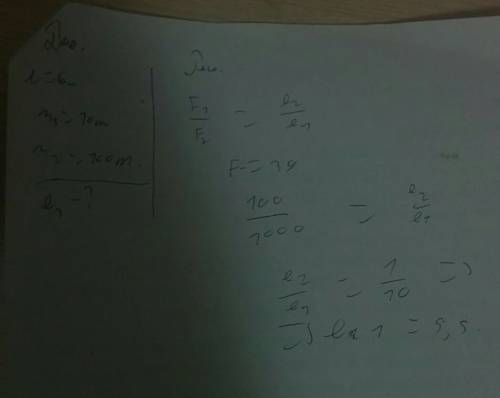 Дано.
l = 6м
m₁ = 10 кг
m₂ = 100 кг.
l₁ - ?
Реш.
F₁/F₂ = l₂/l₁
F = mg
100/1000 = l₂/l₁
l₂/l₁ = 1/10 =>
=> l₁ = 5,5.